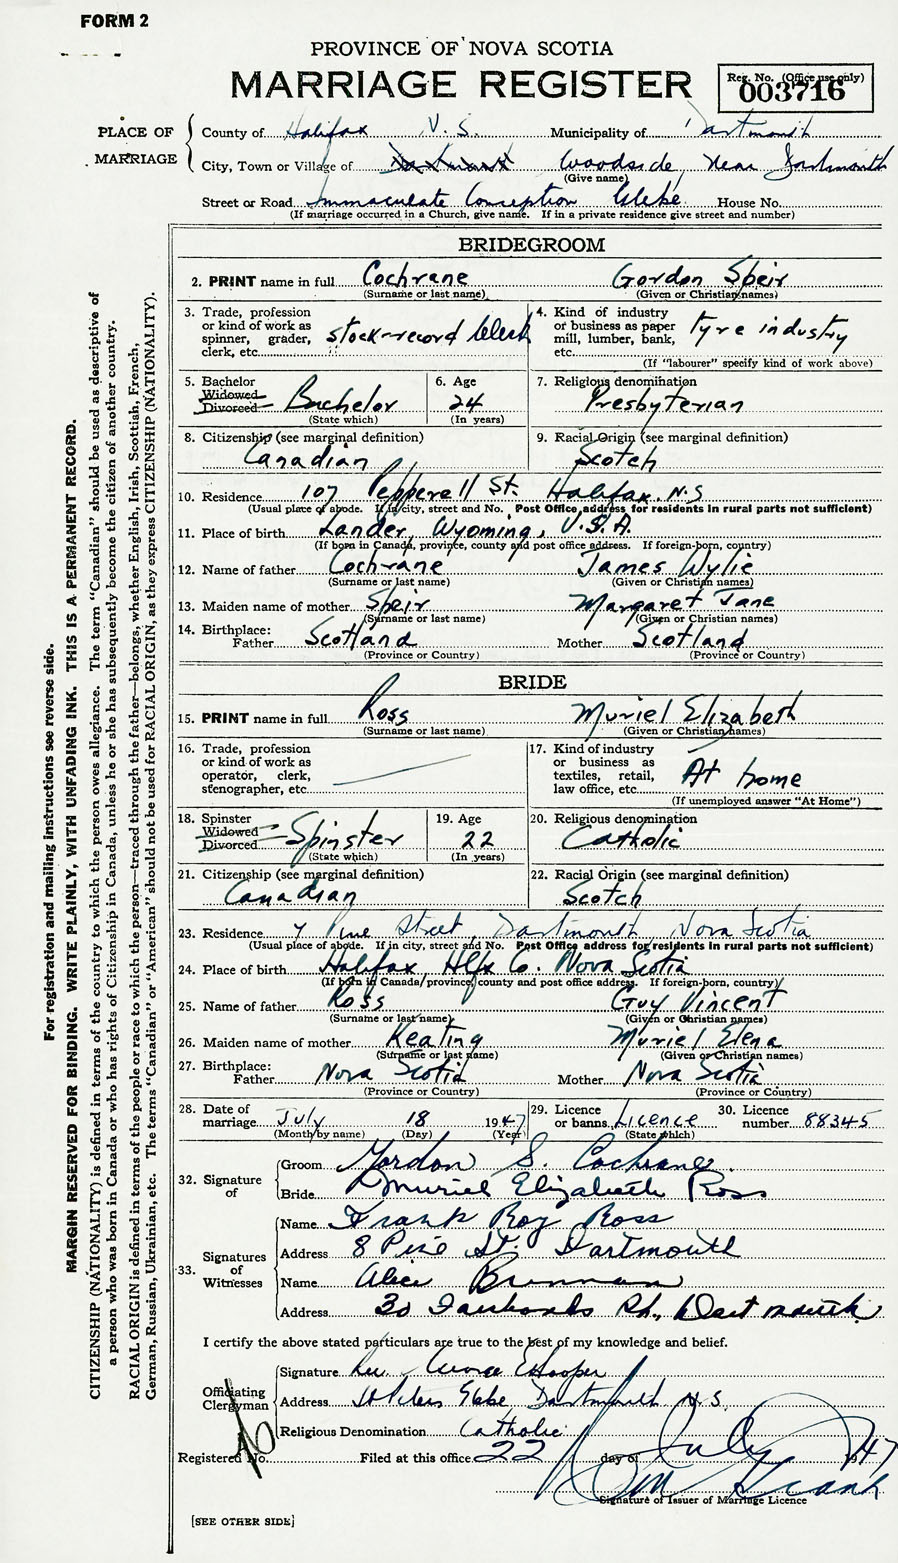 FORM 2
PROVINCE OF NOVA SCOTIA
MARRIAGE REGISTER
Reg. No. (Office use only)
003716
PLACE OF MARRIAGE
County of Halifax N.S. Municipality of Dartmouth
City, Town or Village of Dartmouth Woodside, near Dartmouth
(Give name)
Street or Road Immaculate Conception Glebe House No.
(If marriage occurred in a Church, give name. If in a private residence give street and number)
BRIDEGROOM
2. PRINT name in full Cochrane Gordon Speir
(Surname or last name) (Given or Christian names)
3. Trade, profession or kind of work as spinner, grader, clerk, etc. stock-record clerk
4. Kind of industry or business as paper mill, lumber, bank, etc. tyre industry
(If "labourer" specify kind of work above)
5. Bachelor Widowed Divorced Bachelor
(State which)
6. Age 24
(In years)
7. Religious denomination Presbyterian
8. Citizenship (see marginal definition) Canadian
9. Racial Origin (see marginal definition) Scotch
10. Residence 107 Pepperell St. Halifax. N.S
(Usual place of abode. If in city, street and No. Post Office address for residents in rural parts not sufficient)
11. Place of birth Lander, Wyoming, U.S.A.
(If born in Canada, province, county and post office address. If foreign-born, country)
12. Name of father Cochrane James Wylie
(Surname or last name) (Given or Christian names)
13. Maiden name of mother Speir Margaret Jane
(Surname or last name) (Given or Christian names)
14. Birthplace: Father Scotland Mother Scotland
(Province or Country) (Province or Country)
BRIDE
15. PRINT name in full Ross Muriel Elizabeth
(Surname or last name) (Given or Christian names)
16. Trade, profession or kind of work as operator, clerk, stenographer, etc.
17. Kind of industry or business as textiles, retail, law office, etc. At home
(If unemployed answer "At Home")
18. Spinster Widowed Divorced Spinster
(State which)
19. Age 22
(In years)
20. Religious denomination Catholic
21. Citizenship (see marginal definition) Canadian
22. Racial Origin (see marginal definition) Scotch
23. Residence 7 Pine Street, Dartmouth, Nova Scotia
(Usual place of abode. If in city, street and No. Post Office address for residents in rural parts not sufficient)
24. Place of birth Halifax, Hlfx Co. Nova Scotia
(If born in Canada, province, county and post office address. If foreign-born, country)
25. Name of father Ross Guy Vincent
(Surname or last name) (Given or Christian names)
26. Maiden name of mother Keating Muriel Elena
(Surname or last name) (Given or Christian names)
27. Birthplace: Father Nova Scotia Mother Nova Scotia
(Province or Country) (Province or Country)
28. Date of marriage July 18 1947
(Month by name) (Day) (Year)
29. Licence or banns Licence
(State which)
30. Licence number 88345
32. Signature of
Groom Gordon S. Cochrane.
Bride Muriel Elizabeth Ross
33. Signatures of Witnesses
Name Frank Roy Ross
Address 8 Pine St. Dartmouth
Name Alice Brennan
Address 30 Fairbanks St., Dartmouth
I certify the above stated particulars are true to the best of my knowledge and belief.
Officiating Clergyman
Signature Rev. George
Address St Peters Glebe Dartmouth N.S.
Religious Denomination Catholic
Registered No. Filed at this office 22 day of July 1947
Signature of Issuer of Marriage Licence
[SEE OTHER SIDE]
For registration and mailing instructions see reverse side.
MARGIN RESERVED FOR BINDING. WRITE PLAINLY, WITH UNFADING INK. THIS IS A PERMANENT RECORD.
CITIZENSHIP (NATIONALITY) is defined in terms of the country to which the person owes allegiance. The term "Canadian" should be used as descriptive of
a person who was born in Canada or who has rights of Citizenship in Canada, unless he or she has subsequently become the citizen of another country.
RACIAL ORIGIN is defined in terms of the people or race to which the person—traced through the father—belongs, whether English, Irish, Scottish, French,
German, Russian, Ukrainian, etc. The terms "Canadian" or "American" should not be used for RACIAL ORIGIN, as they express CITIZENSHIP (NATIONALITY).